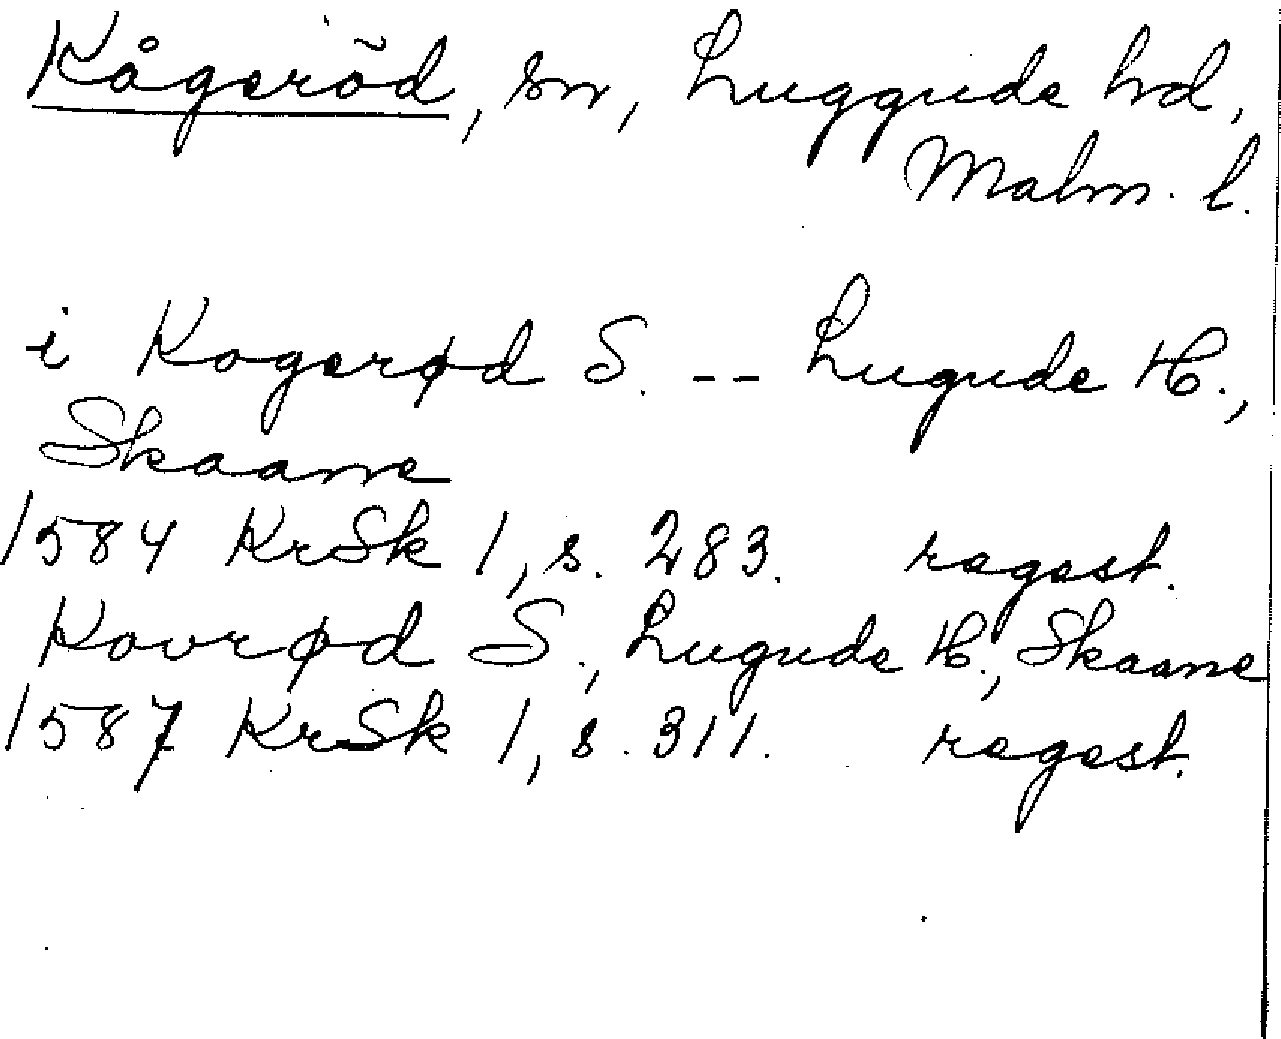 Kågeröd, sn, Luggude hd,
Malm. l.
i Kogerød S. -- Lugude H.,
Skaane
1584 KrSk 1, s. 283. regest.
Kovrød S., Lugude H., Skaane
1587 KrSk 1, s. 311. regest.